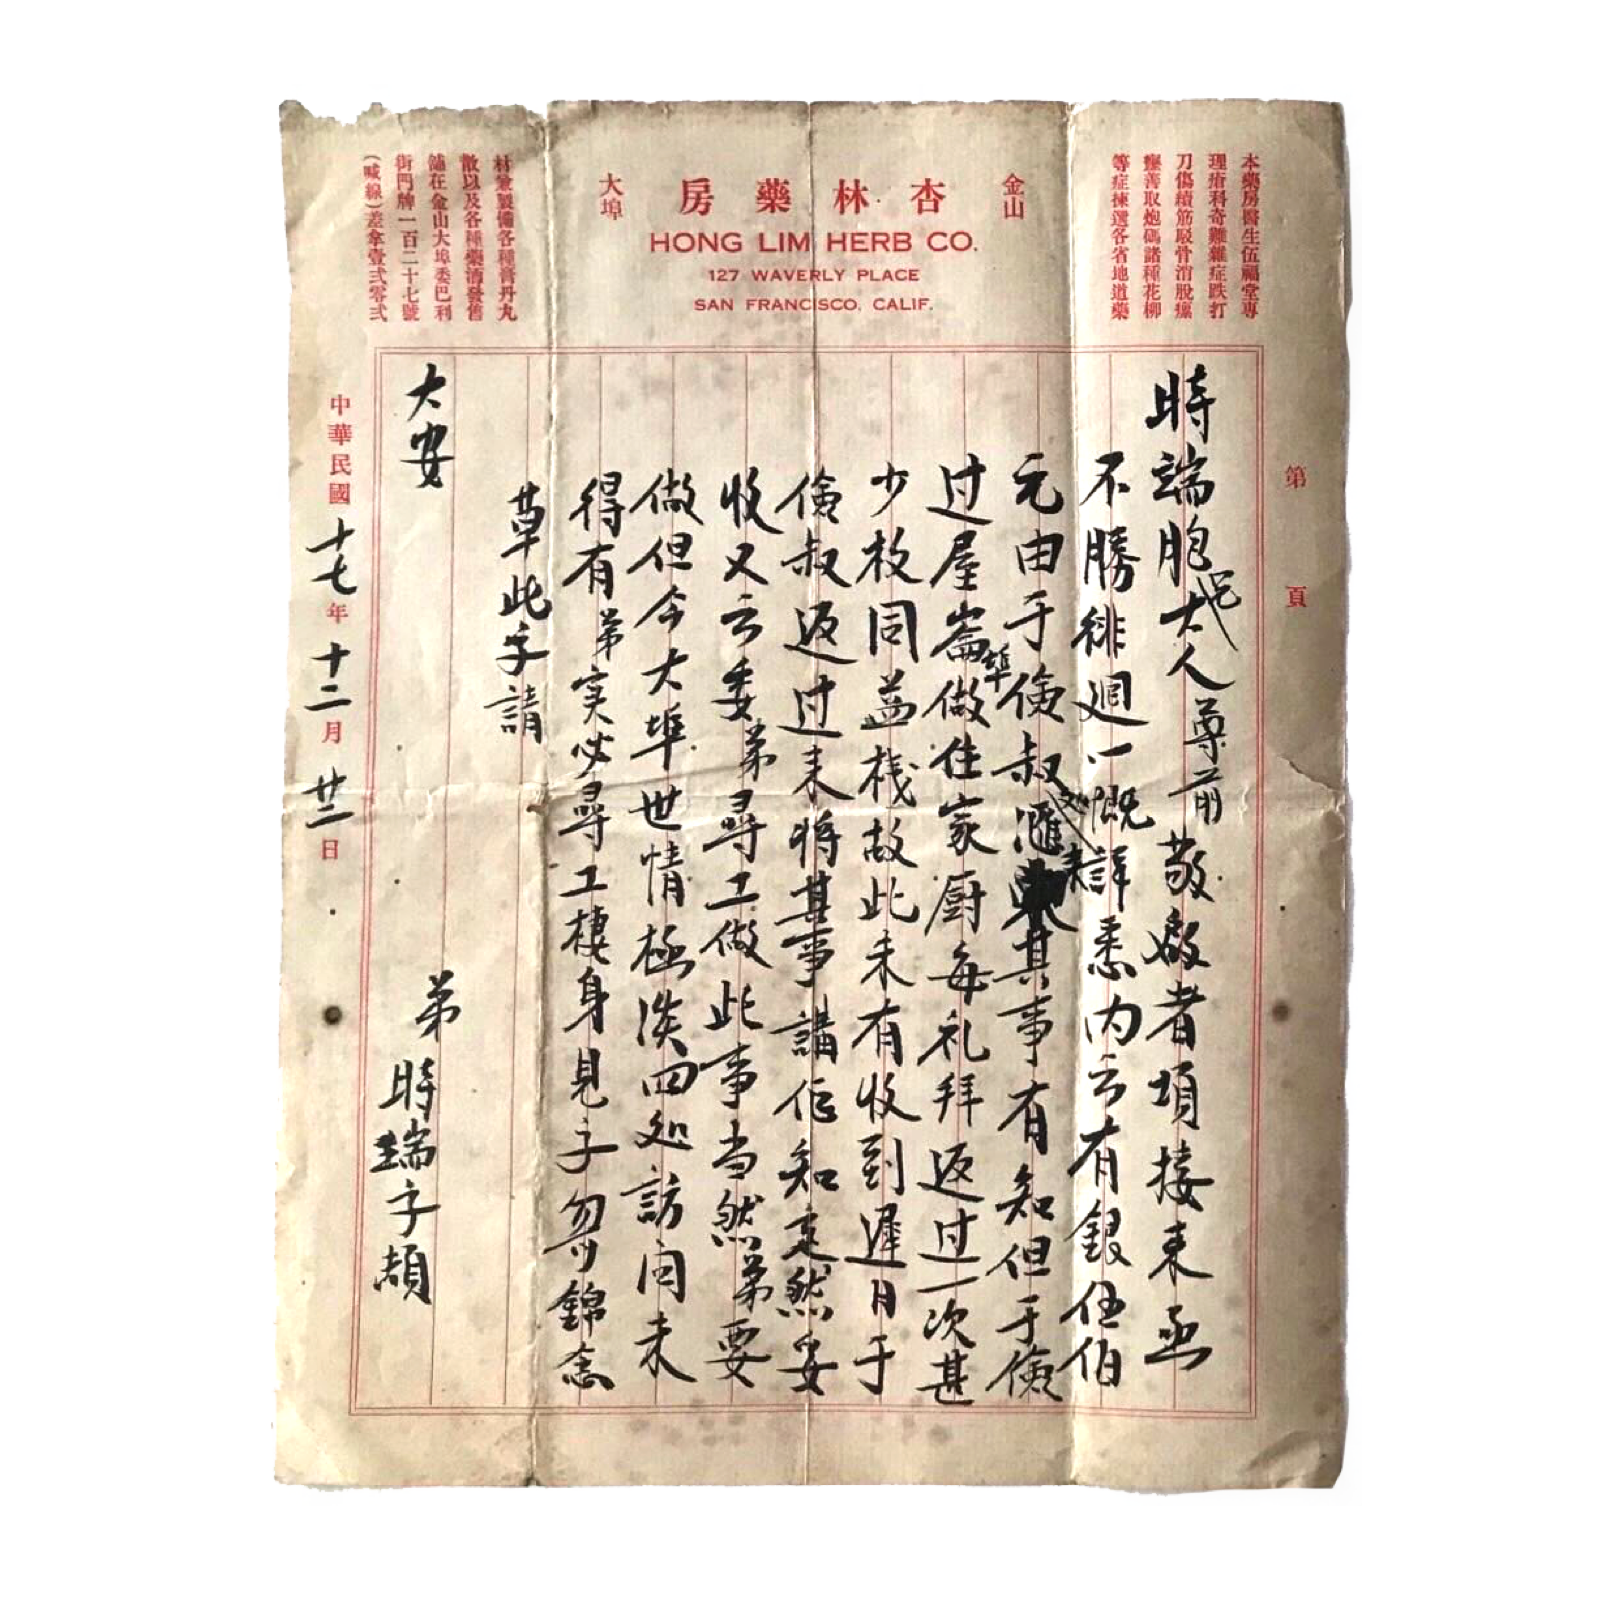 本藥房醫生伍福堂專
理瘡科奇難雜症跌打
刀傷續筋駁骨消脫瘋
癱善取炮碼諸種花柳
等症揀選各省地道藥
金山
杏林藥房
大埠
HONG LIM HERB CO.
127 WAVERLY PLACE
SAN FRANCISCO, CALIF.
材兼製備各種膏丹丸
散以及各種藥酒發售
舖在金山大埠委巴利
街門牌一百二十七號
(喊線)差拿壹弍零弍
第 頁
時端胞兄大人尊前敬啟者項接来函
不勝徘廻一概詳悉內云有銀伍伯
元由于儉叔滙交来其事有知但于儉
过屋崙埠做住家厨每礼拜返过一次甚
少枚同益栈故此未有收到遲日于
儉叔返过来将其事講佢知定然妥
收又云委弟尋工做此事当然弟要
做但今大埠世情極淡四处訪问未
得有弟实必尋工棲身見字勿錦念
草此字請
大安
弟 時瑞字頓
中華民國十七年十二月廿一日